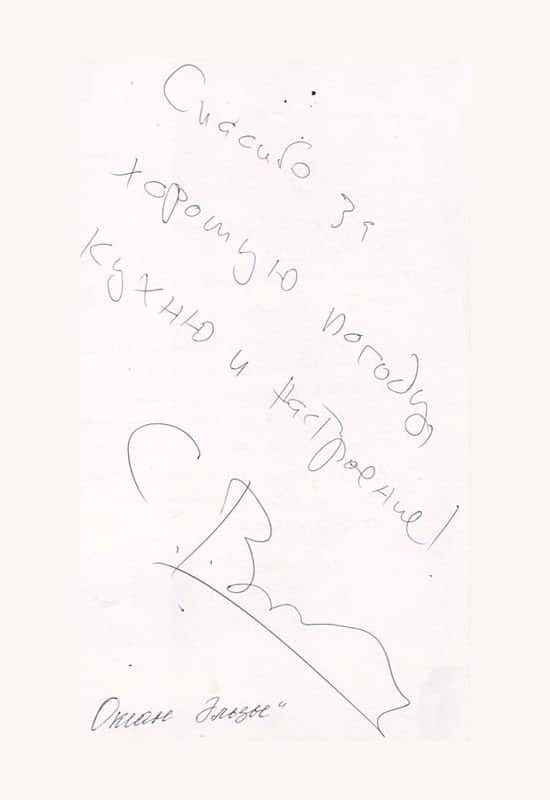 Спасибо за
хорошую погоду,
кухню и настроение!
С. В
Океан Эльзы"